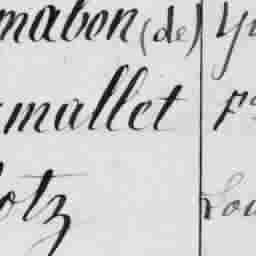 mabon (de)
mallet
otz
Lou